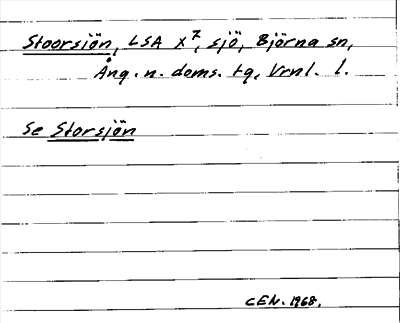 Stoorsjön, LSA X⁷, sjö, Björna sn,
Ång. n. doms. tg, Vrnl. l.
Se Storsjön
CEN. 1968.